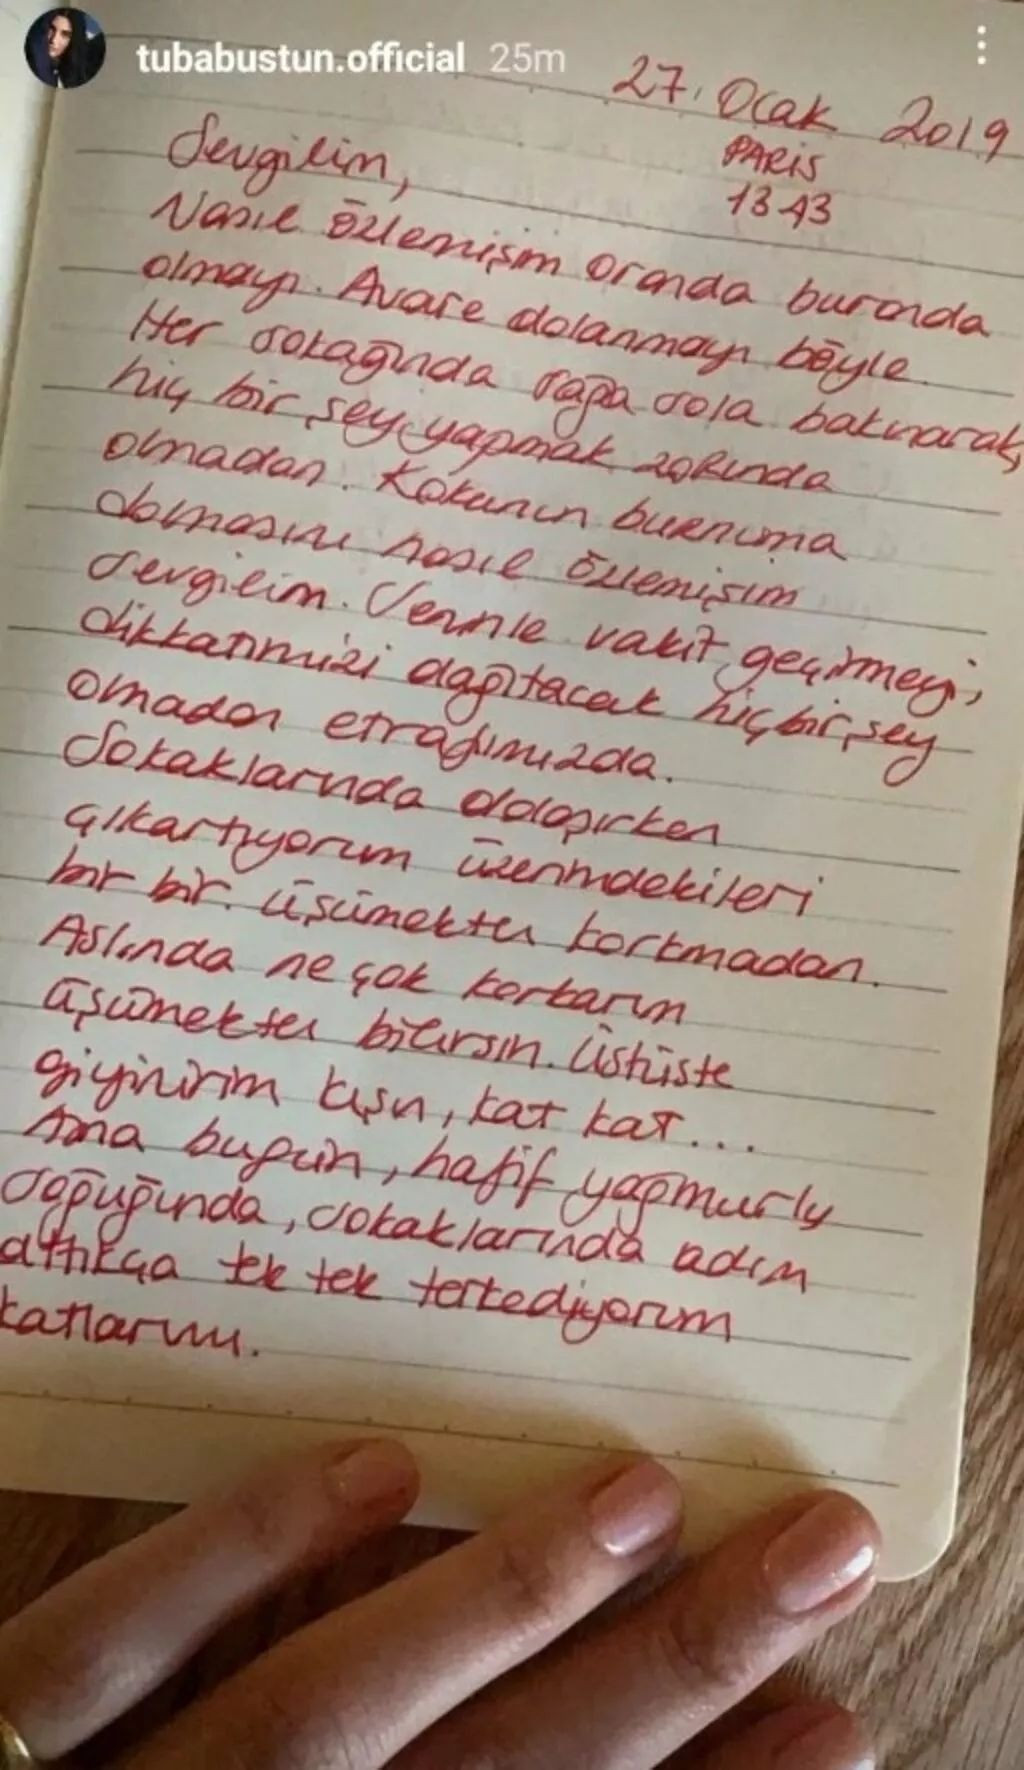 tubabustun.official 25m
27. Ocak 2019
PARIS
13 43
Sevgilim,
Nasıl özlemişim oranda buranda
olmayı. Avare dolanmayı böyle.
Her sokağında sağa sola bakınarak,
hiç bir şey yapmak zorunda
olmadan. Kokunun burnuma
dolmasını nasıl özlemişim
sevgilim. Seninle vakit geçirmeyi,
dikkatimizi dağıtacak hiçbir şey
omadan etrafımızda.
Sokaklarında dolaşırken
çıkartıyorum üzerimdekileri
bir bir. üşümekten korkmadan.
Aslında ne çok korkarım
üşümekten bilirsin. üstüste
giyinirim kışın, kat kat...
Ama bugün, hafif yağmurlu
soğuğunda, sokaklarında adım
attıkça tek tek terkediyorum
katlarımı.